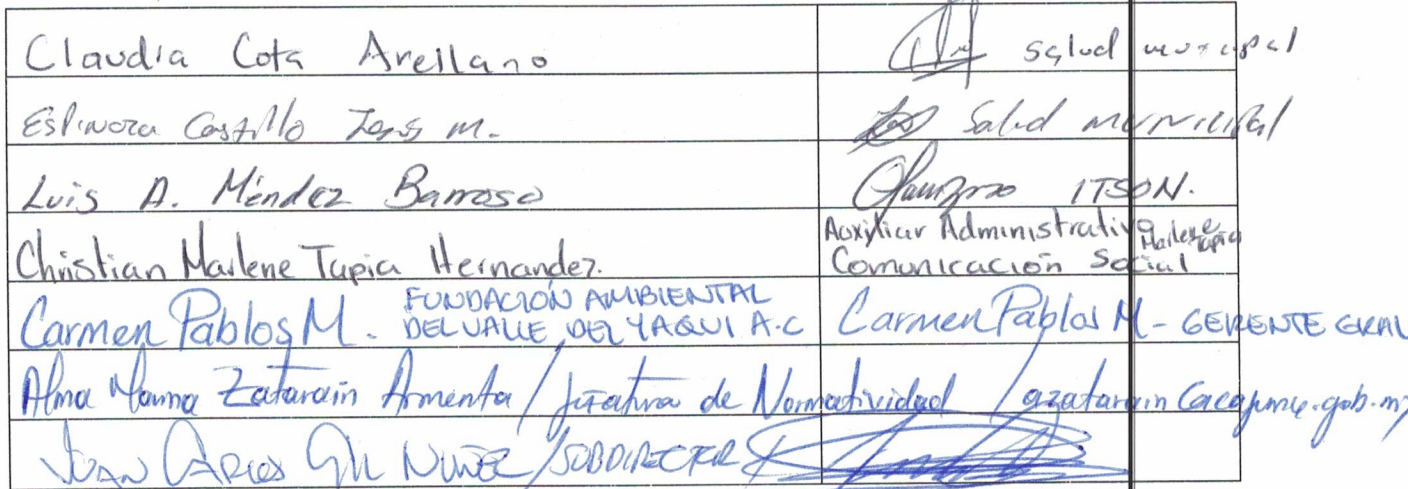 Claudia Cota Arellano Salud municipal
Espinoza Castillo Jesús M. Salud municipal
Luis A. Méndez Barroso ITSON.
Christian Marlene Tapia Hernandez. Auxiliar Administrativo Marlene Tapia
Comunicación Social
Carmen Pablos M. FUNDACIÓN AMBIENTAL
DEL VALLE DEL YAQUI A.C Carmen Pablos M - GERENTE GRAL
Alma Zatarain Armenta / Jefatura de Normatividad /
JUAN CARLOS GIL NUÑEZ / SUBDIRECTOR